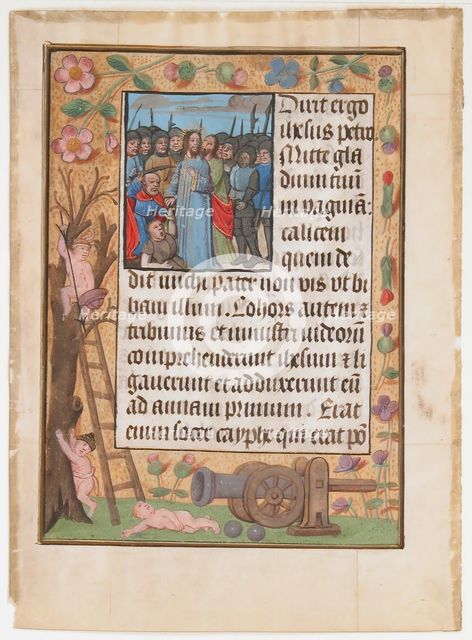 Dixit ergo
ihesus petro.
Mitte gla
dium tuū
in vaginā:
calicem
quem de
dit michi pater non vis vt bi
bam illum. Cohors autem ⁊
tribunus et ministri iudeorū
comprehenderunt ihesum ⁊ li
gauerunt et adduxerunt eū
ad annam primum. Erat
enim socer cayphe qui erat pō
Heritage
Heritage
Heritage
Heritage
Heritage
Heritage